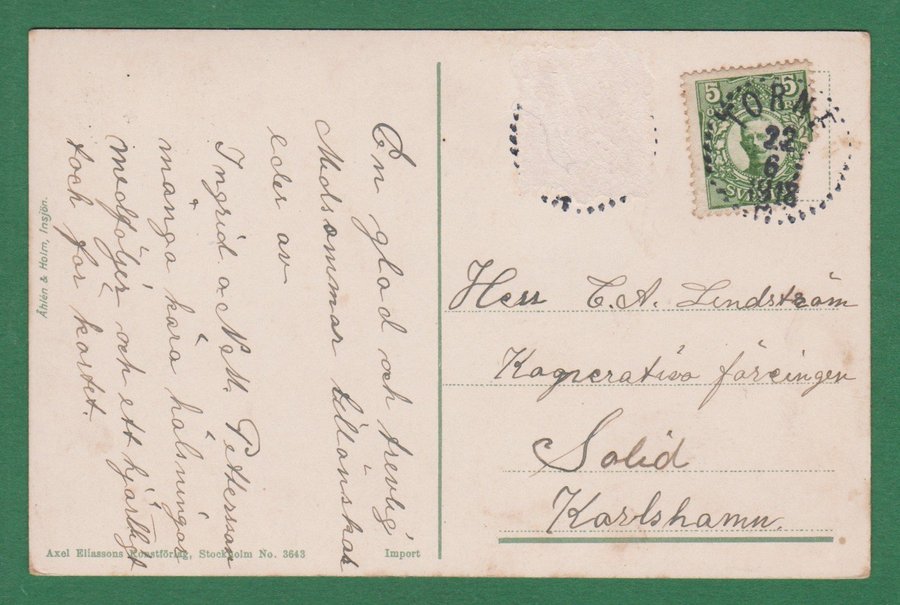 En glad och trevlig
Midsommar tillönskas
eder av
Ingrid o Pettersson
många kära hälsningar
medföljer och ett hjärtligt
tack för kortet.
5 5
SVERIGE
TORNE
22
6
1918
Herr C. A. Lindström
Kooperativa föreingen
Solid
Karlshamn.
Åhlén & Holm, Insjön.
Axel Eliassons Konstförlag, Stockholm No. 3643
Import